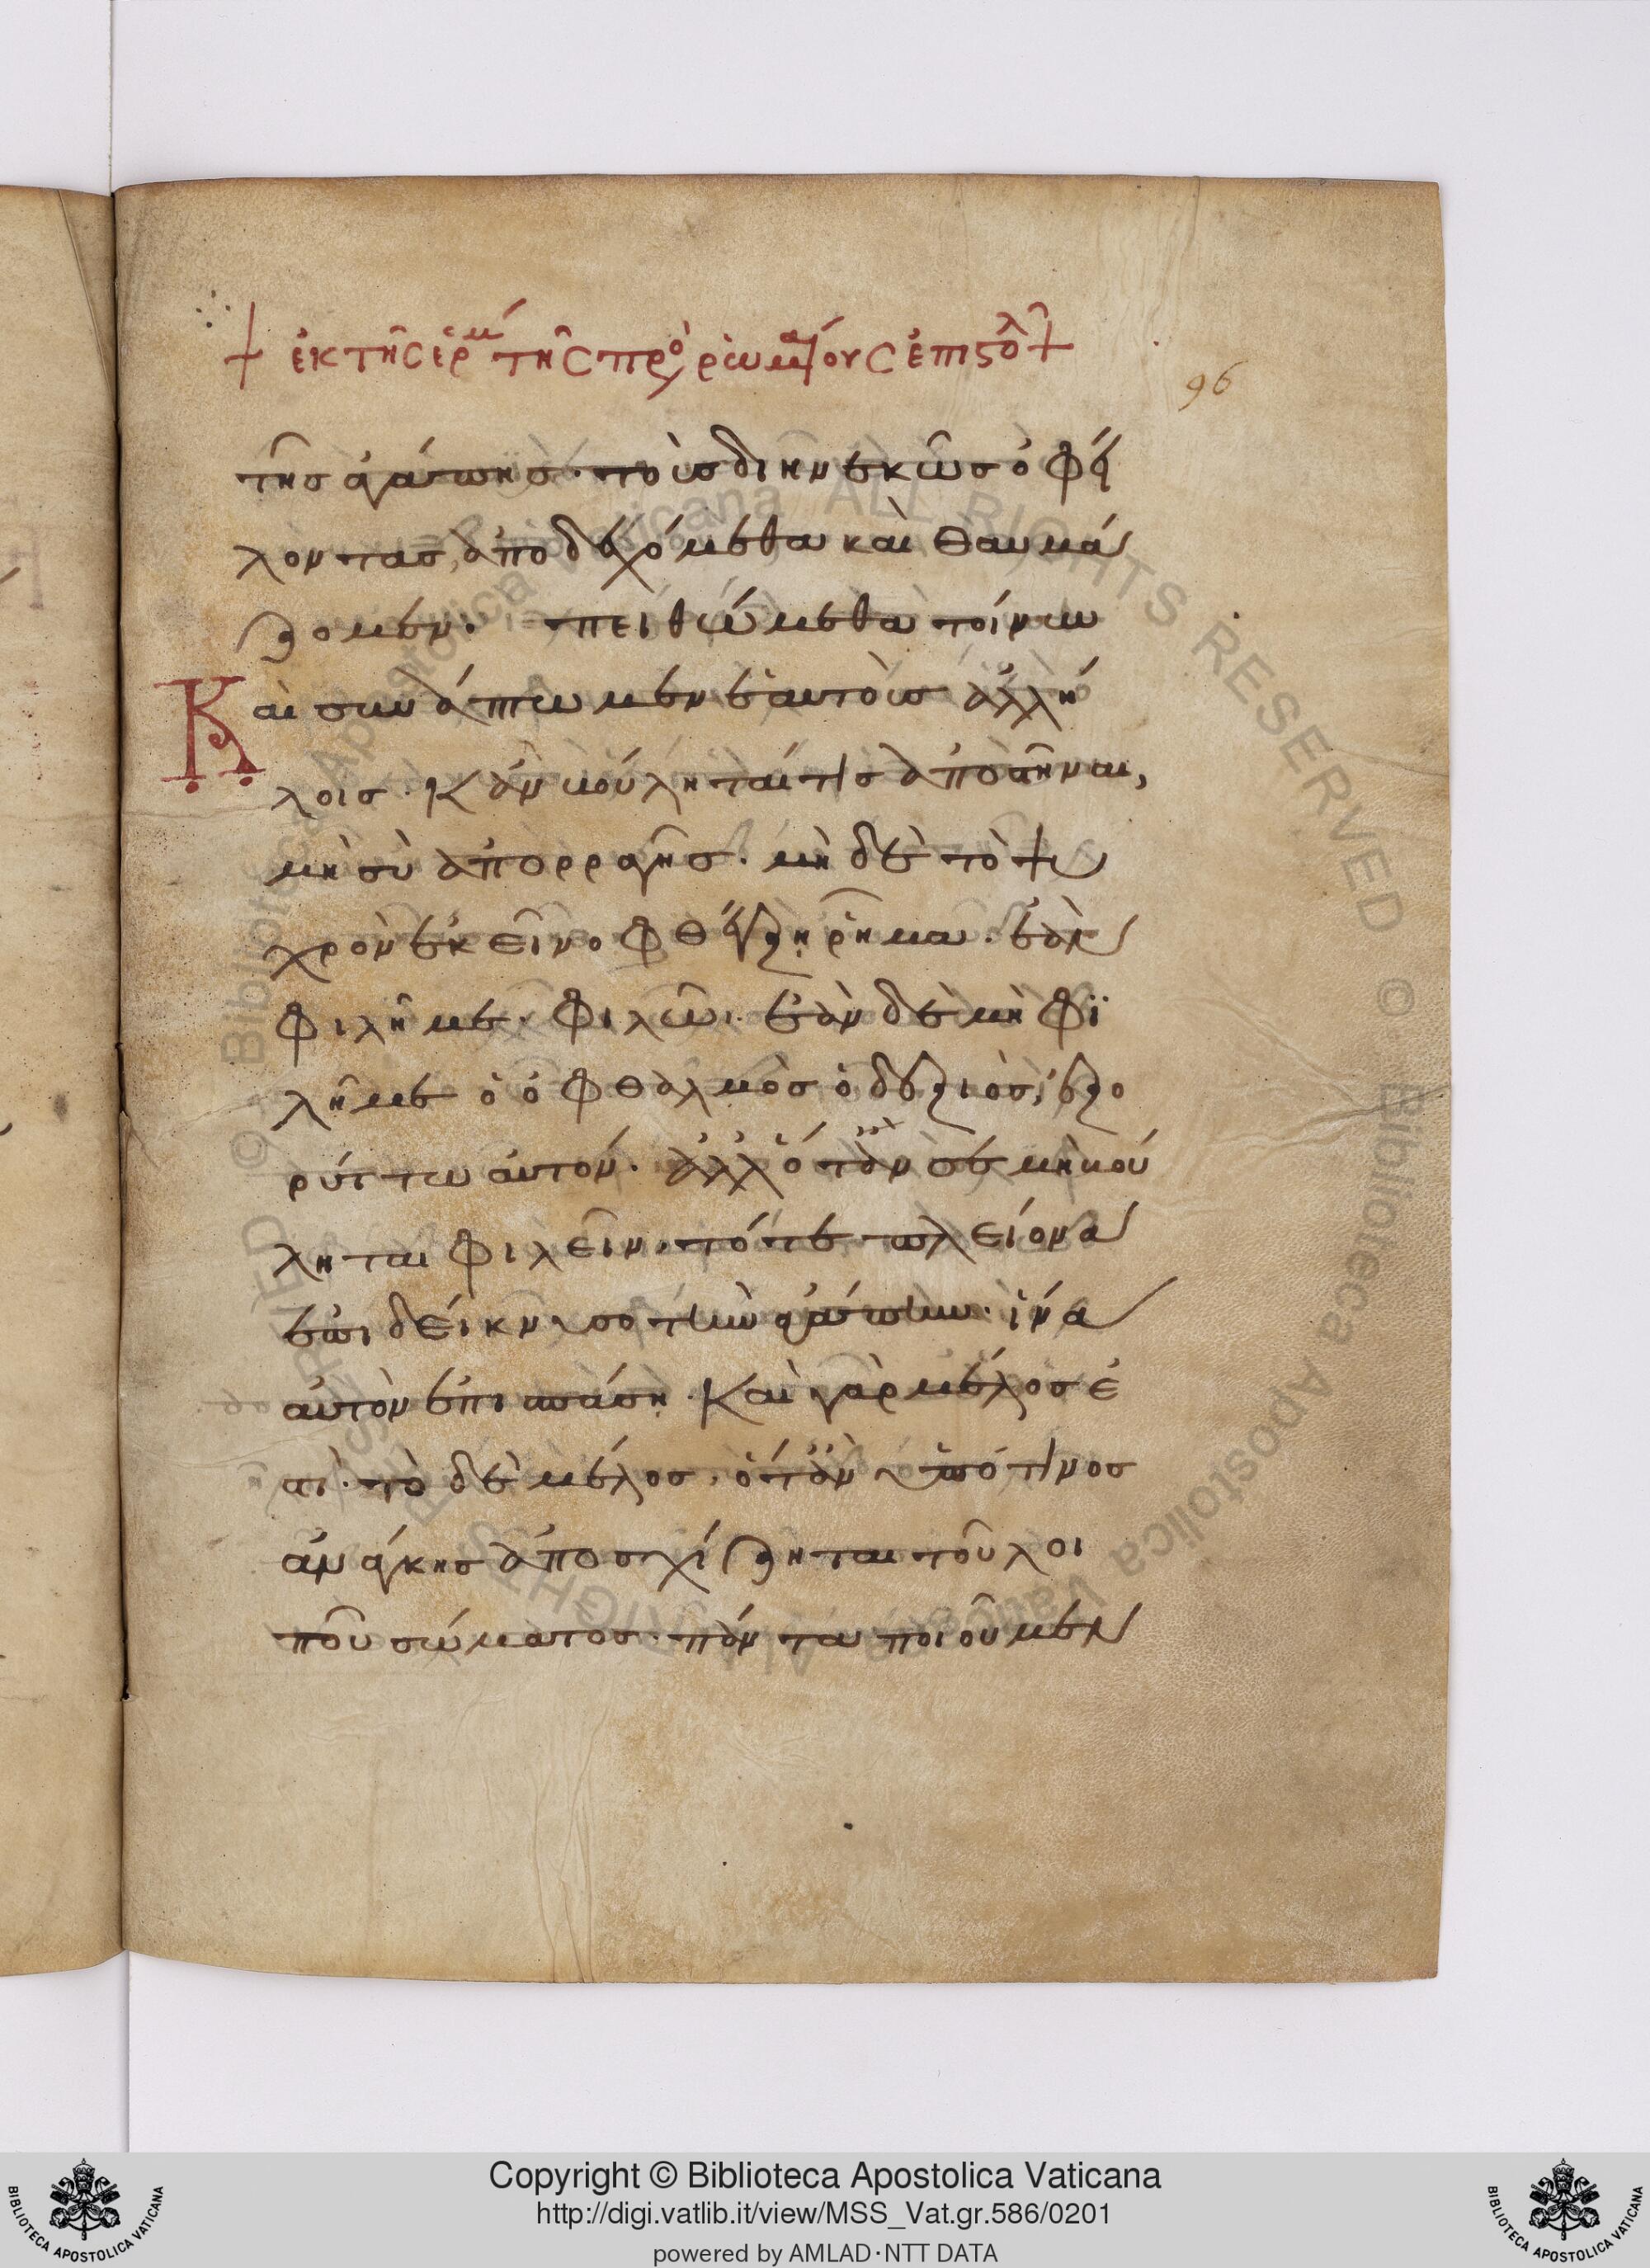 + ἐκ τῆς ἑρμ τῆς πρὸ ῥωμαίους ἐπιστολ +
96
τῆς ἀγάπης· τοὺς διηνεκῶς ὀφεί
λοντας, ἀποδεχόμεθα καὶ θαυμά
ζομεν. πειθώμεθα τοίνυν
Καὶ συνάπτωμεν ἑαυτοὺς ἀλλή
λοις. κἂν βούληταί τις ἀποστῆναι,
μὴ σὺ ἀπορραγῇς. μηδὲ τὸ ψυ
χρὸν ἐκεῖνο φθέγξῃ ῥῆμα. ἐὰν
φιλῆ με, φιλῶ. ἐὰν δὲ μὴ φι
λῆ με ὁ ὀφθαλμὸς ὁ δεξιὸς, ἐξο
ρύττω αὐτόν. ἀλλ' ὅταν σε μὴ βού
ληται φιλεῖν, τότε πλείονα
ἐπιδείκνυσο τὴν ἀγάπην. ἵνα
αὐτὸν ἐπισπάσῃ. Καὶ γὰρ μέλος ἐ
στί. τὸ δὲ μέλος, ὅταν ὑπό τινος
ἀνάγκης ἀποσχίζηται τοῦ λοι
ποῦ σώματος. πάντα ποιοῦμεν
Copyright © Biblioteca Apostolica Vaticana
http://digi.vatlib.it/view/MSS_Vat.gr.586/0201
powered by AMLAD·NTT DATA
BIBLIOTECA APOSTOLICA VATICANA
BIBLIOTECA APOSTOLICA VATICANA